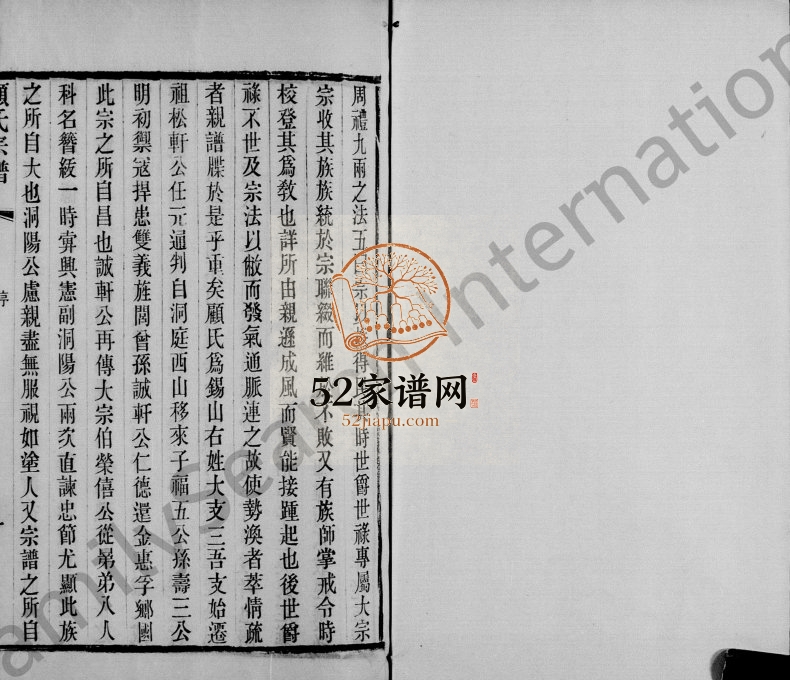 周禮九兩之法五曰宗 得民 時世爵世祿專屬大宗
宗收其族族統於宗聯綴而維 不敗又有族師掌戒令時
校登其爲敎也詳所由親遜成風而賢能接踵起也後世爵
祿不世及宗法以敝而發氣通脈連之故使勢渙者萃情疏
者親譜牒於是乎重矣顧氏爲錫山右姓大支三吾支始遷
祖松軒公任元通判自洞庭西山移來子福五公孫壽三公
明初禦寇捍患雙義旌閭曾孫誠軒公仁德還金惠孚鄉國
此宗之所自昌也誠軒公再傳大宗伯榮僖公從弟弟八人
科名簪紱一時弈興憲副洞陽公兩次直諫忠節尤顯此族
之所自大也洞陽公慮親盡無服視如塗人又宗譜之所自
顧氏宗譜
序
52家谱网
52jiapu.com
FamilySearch International